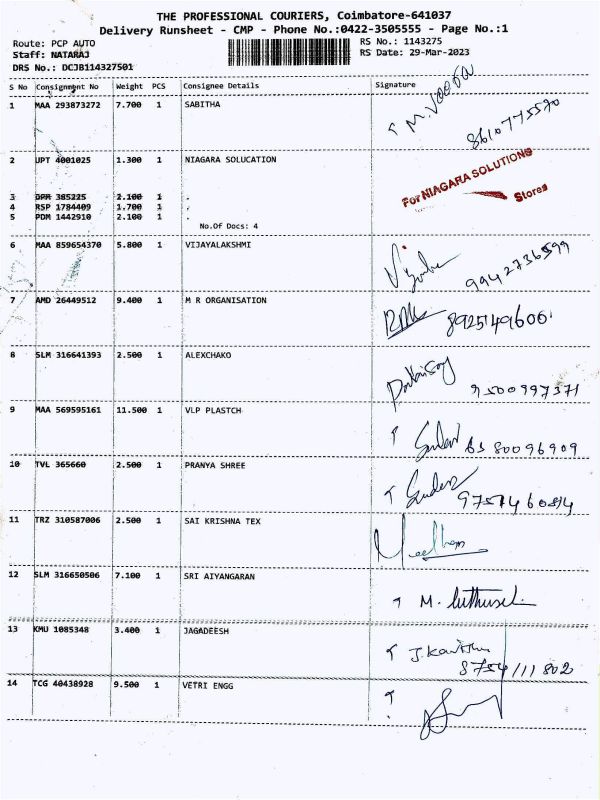 THE PROFESSIONAL COURIERS, Coimbatore-641037
Delivery Runsheet - CMP - Phone No.:0422-3505555 - Page No.:1
Route: PCP AUTO
RS No.: 1143275
Staff: NATARAJ
RS Date: 29-Mar-2023
DRS No.: DCJB114327501
S No Consignment No Weight PCS Consignee Details Signature
1 MAA 293873272 7.700 1 SABITHA
8610775520
2 UPT 4001025 1.300 1 NIAGARA SOLUCATION
For NIAGARA SOLUTIONS
Stores
3 DPR 385225 2.100 1 .
4 RSP 1784409 1.700 1 .
5 PDM 1442910 2.100 1 .
No.Of Docs: 4
6 MAA 859654370 5.800 1 VIJAYALAKSHMI
9942736599
7 AMD 26449512 9.400 1 M R ORGANISATION
8925149606
8 SLM 316641393 2.500 1 ALEXCHAKO
9500997371
9 MAA 569595161 11.500 1 VLP PLASTCH
6380096909
10 TVL 365660 2.500 1 PRANYA SHREE
11 TRZ 310587006 2.500 1 SAI KRISHNA TEX
12 SLM 316650506 7.100 1 SRI AIYANGARAN
13 KMU 1085348 3.400 1 JAGADEESH
8754111802
14 TCG 40438928 9.500 1 VETRI ENGG